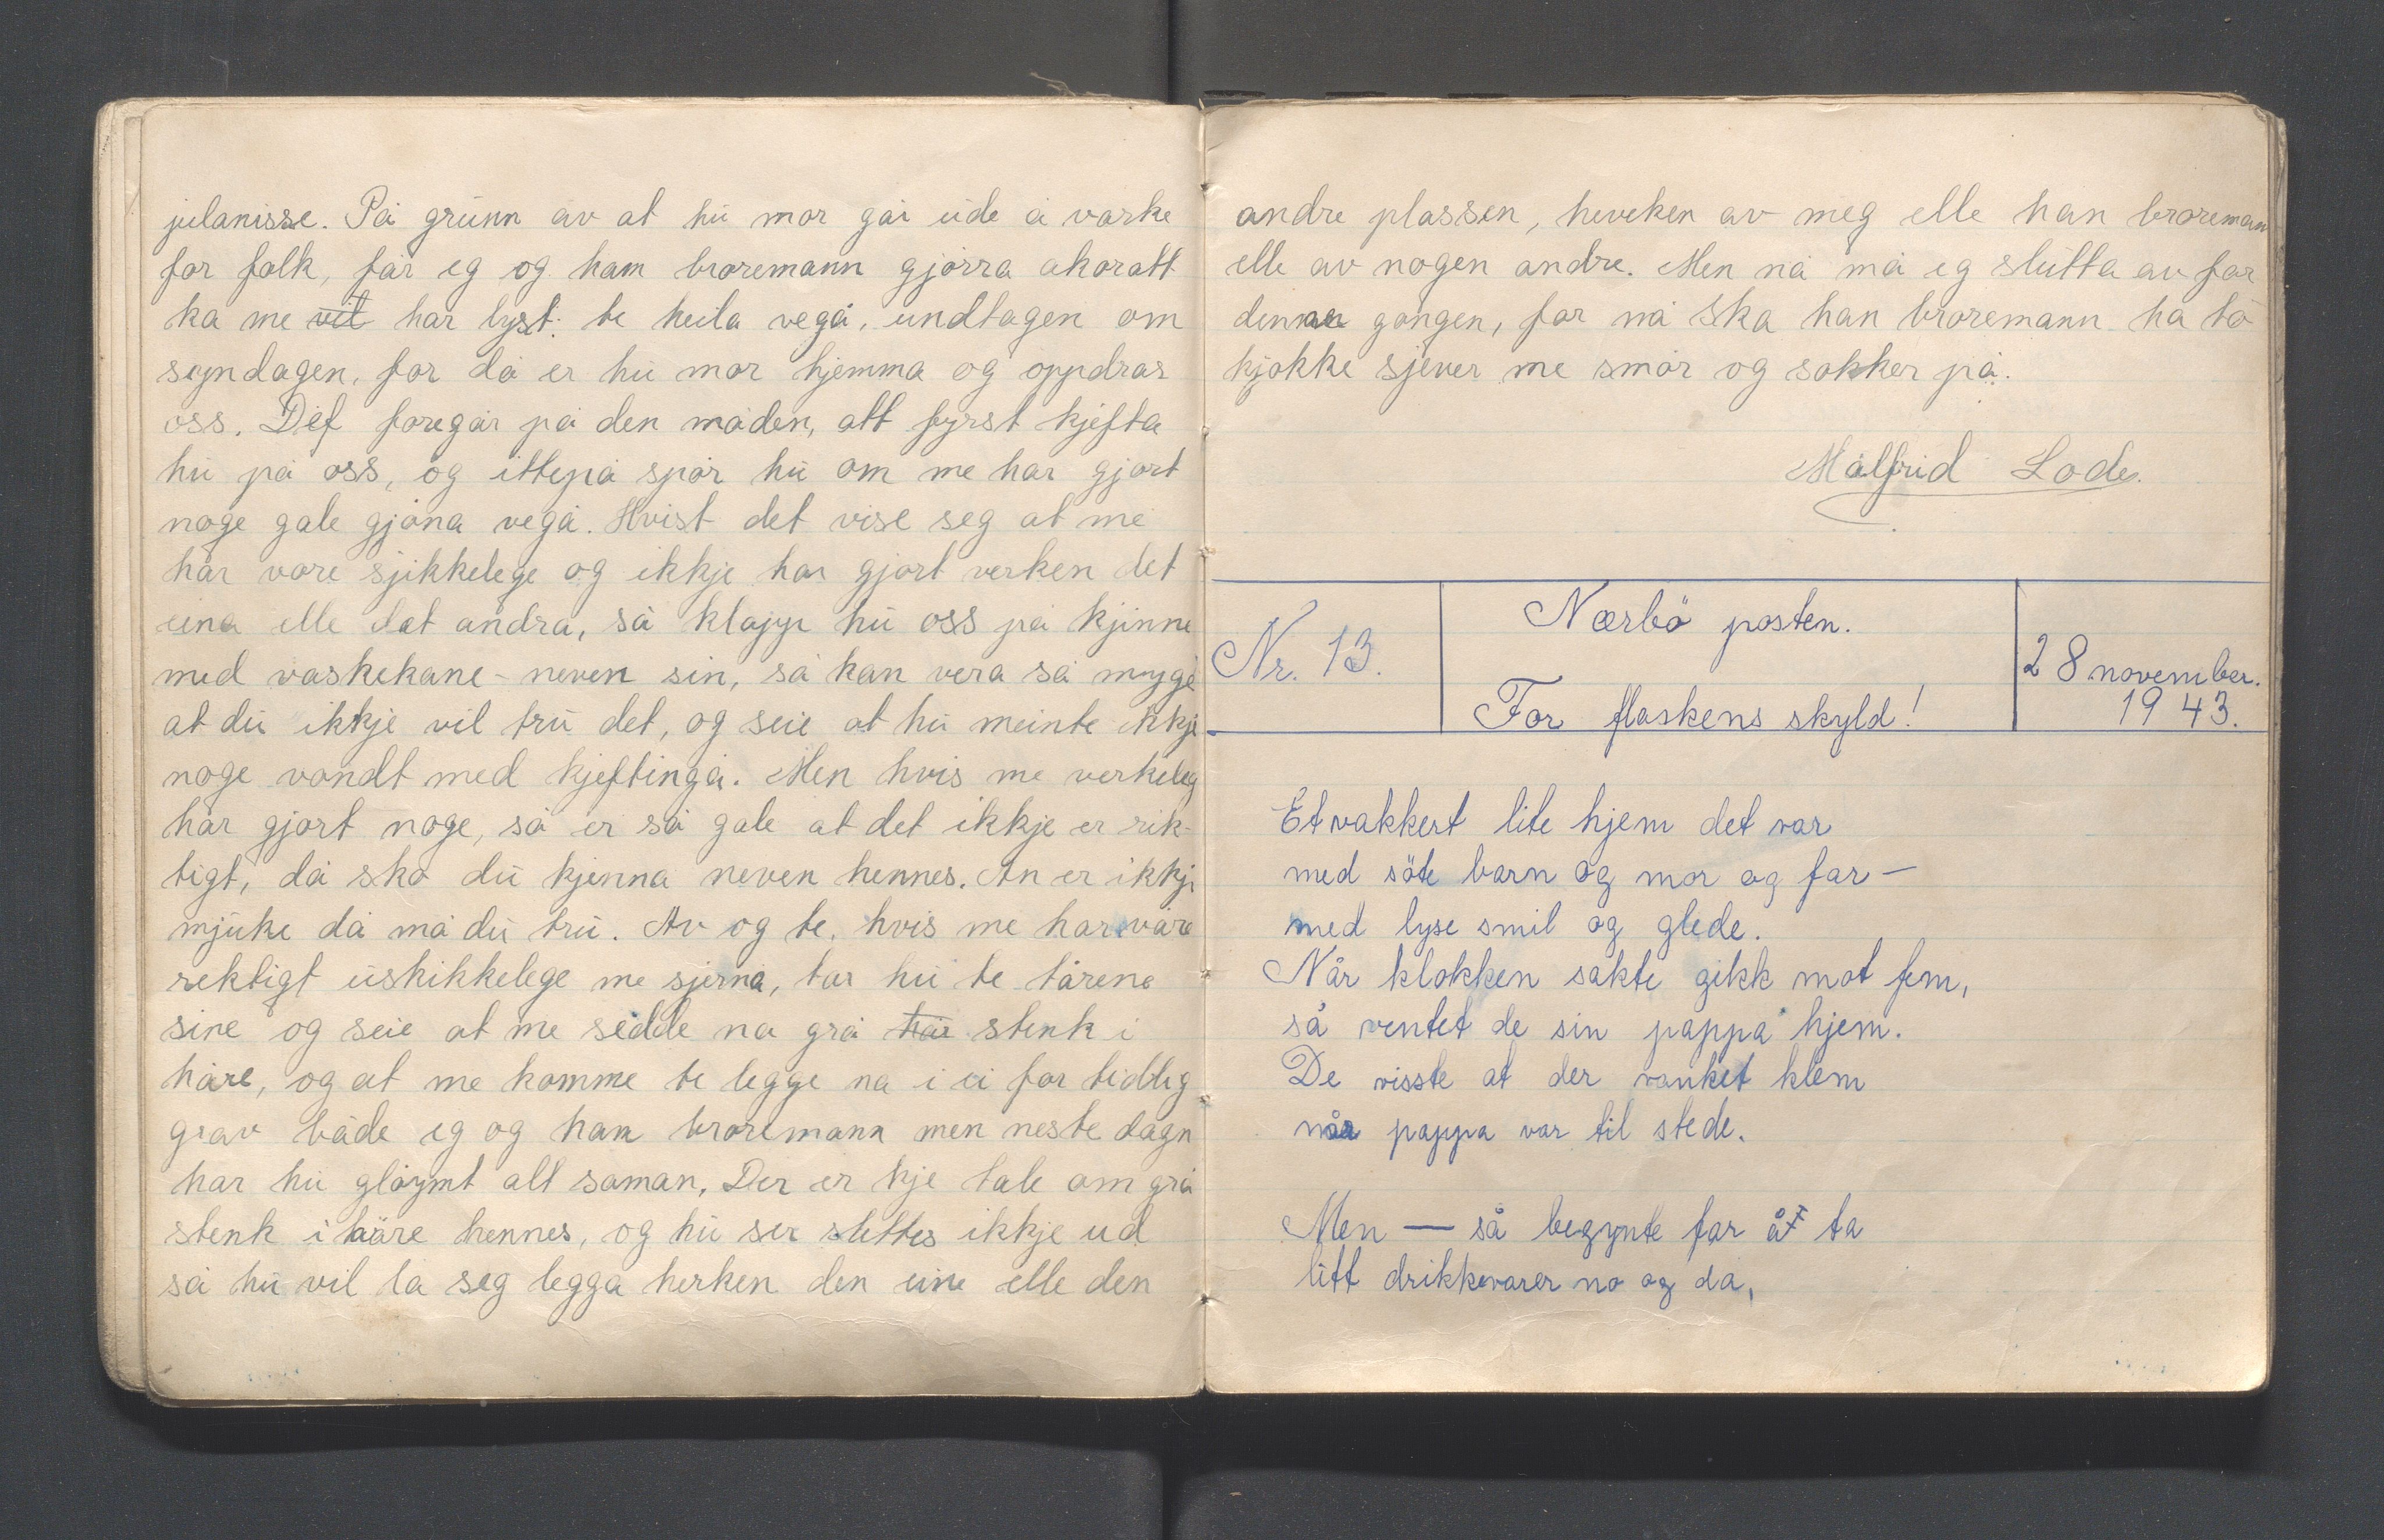 julanisse. På grunn av at hu mor går ude å varke
for folk, får eg og ham broremann gjørra akoratt
ka me vil har lyst te heila vegå, undtagen om
syndagen, for då er hu mor hjemma og oppdrar
oss. Det foregår på den måden, att fyrst kjefta
hu på oss, og ittepå spør hu om me har gjort
noge gale gjøna vegå. Hvist det vise seg at me
har vore sjikkelege og ikkje har gjort verken det
eina elle det andra, så klapp hu oss på kjinne
med vaskekane-neven sin, så kan vera så mygge
at du ikkje vil tru det, og seie at hu meinte ikkje
noge vondt med kjeftingå. Men hvis me verkeleg
har gjort noge, så er så gale at det ikkje er rik-
tigt, då ska du kjenna neven hennes. An er ikkje
mjuke då må du tru. Av og te, hvis me har våre
rektigt uskikkelege me sjerna, tar hu te tårene
sine og seie at me sedde na grå hår stenk i
håre, og at me komme te legge na i ei for tidlig
grav både eg og ham broremann men neste dagn
har hu gløymt alt saman. Der er kje tale om grå
stenk i håre hennes, og hu ser slettes ikkje ud
så hu vil la seg legga herken den eine elle den
andre plassen, heveken av meg elle han broremann
elle av nogen andre. Men nå må eg slutta av for
denne gongen, for nå ska han broremann ha to
kjøkke sjever me smør og sokker på.
Målfrid Lode.
Nr. 13.
Nærbö posten.
For flaskens skyld!
28 november.
1943.
Et vakkert lite hjem det var
med söte barn og mor og far—
med lyse smil og glede.
Når klokken sakte gikk mot fem,
så ventet de sin pappa hjem.
De visste at der vanket klem
når pappa var til stede.
Men — så begynte far å ta
litt drikkevarer no og da,